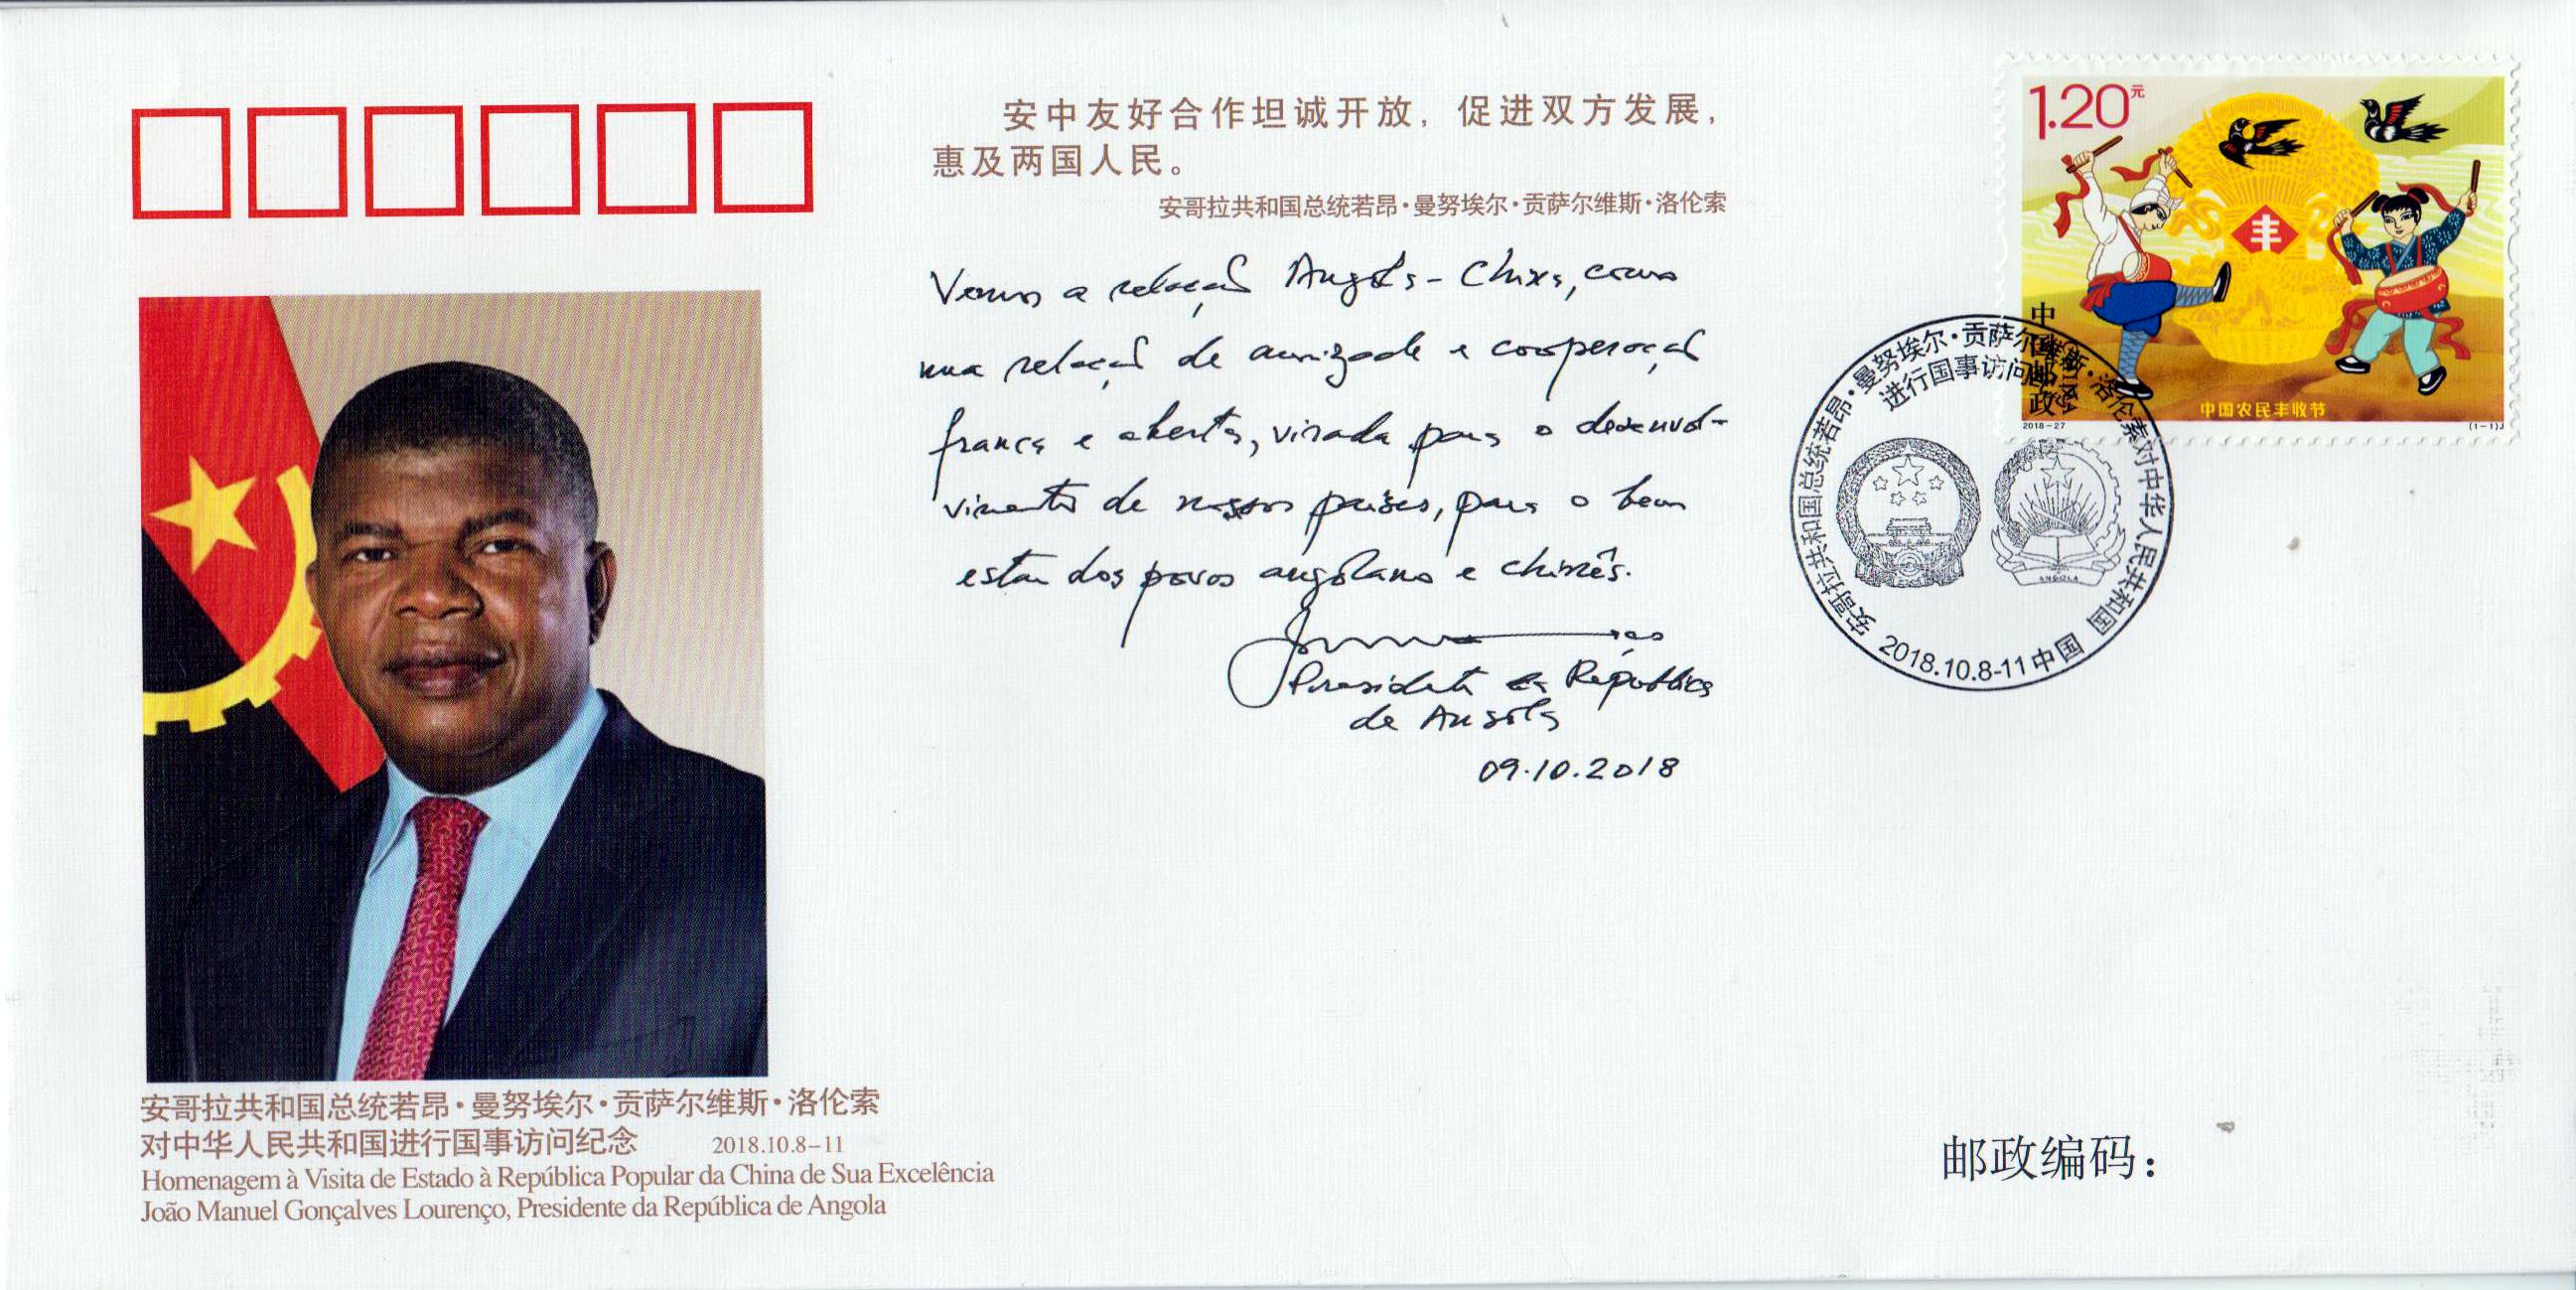 安中友好合作坦诚开放，促进双方发展，
惠及两国人民。
安哥拉共和国总统若昂·曼努埃尔·贡萨尔维斯·洛伦索
Vemos a relação Angola-China, como
uma relação de amizade e cooperação
franca e aberta, virada para o desenvol-
vimento de nossos países, para o bem
estar dos povos angolano e chinês.
Presidente da República
de Angola
09.10.2018
1.20元
中国邮政
中国农民丰收节
2018-27
(1-1)J
安哥拉共和国总统若昂·曼努埃尔·贡萨尔维斯·洛伦索对中华人民共和国
进行国事访问
ANGOLA
2018.10.8-11 中国
安哥拉共和国总统若昂·曼努埃尔·贡萨尔维斯·洛伦索
对中华人民共和国进行国事访问纪念 2018.10.8-11
Homenagem à Visita de Estado à República Popular da China de Sua Excelência
João Manuel Gonçalves Lourenço, Presidente da República de Angola
邮政编码：
丰